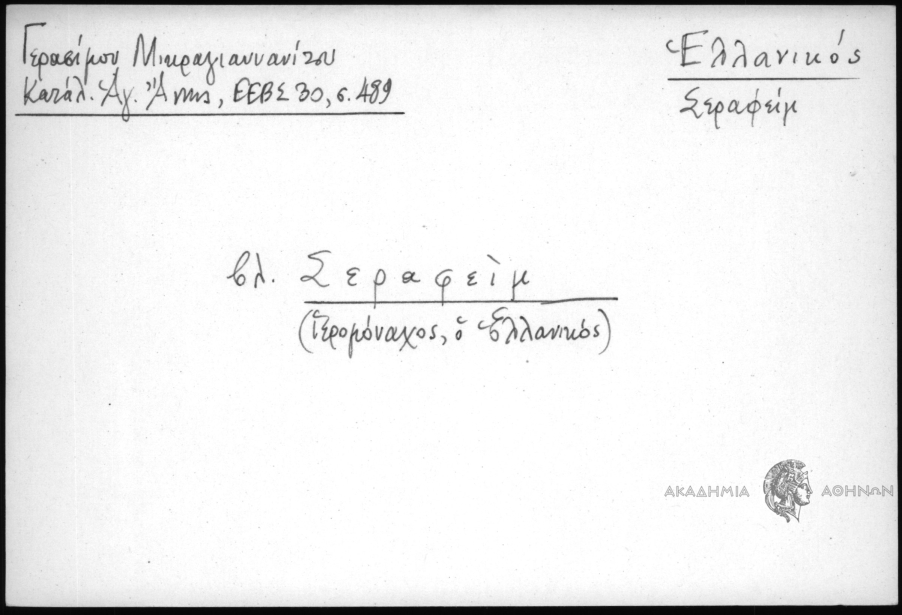 Γερασίμου Μικραγιαννανίτου
Κατάλ. Ἁγ. Ἄννης, ΕΕΒΣ 30, σ. 489
Ἑλλανικός
Σεραφείμ
βλ. Σεραφεὶμ
(Ἱερομόναχος, ὁ Ἑλλανικός)
ΑΚΑΔΗΜΙΑ ΑΘΗΝΩΝ